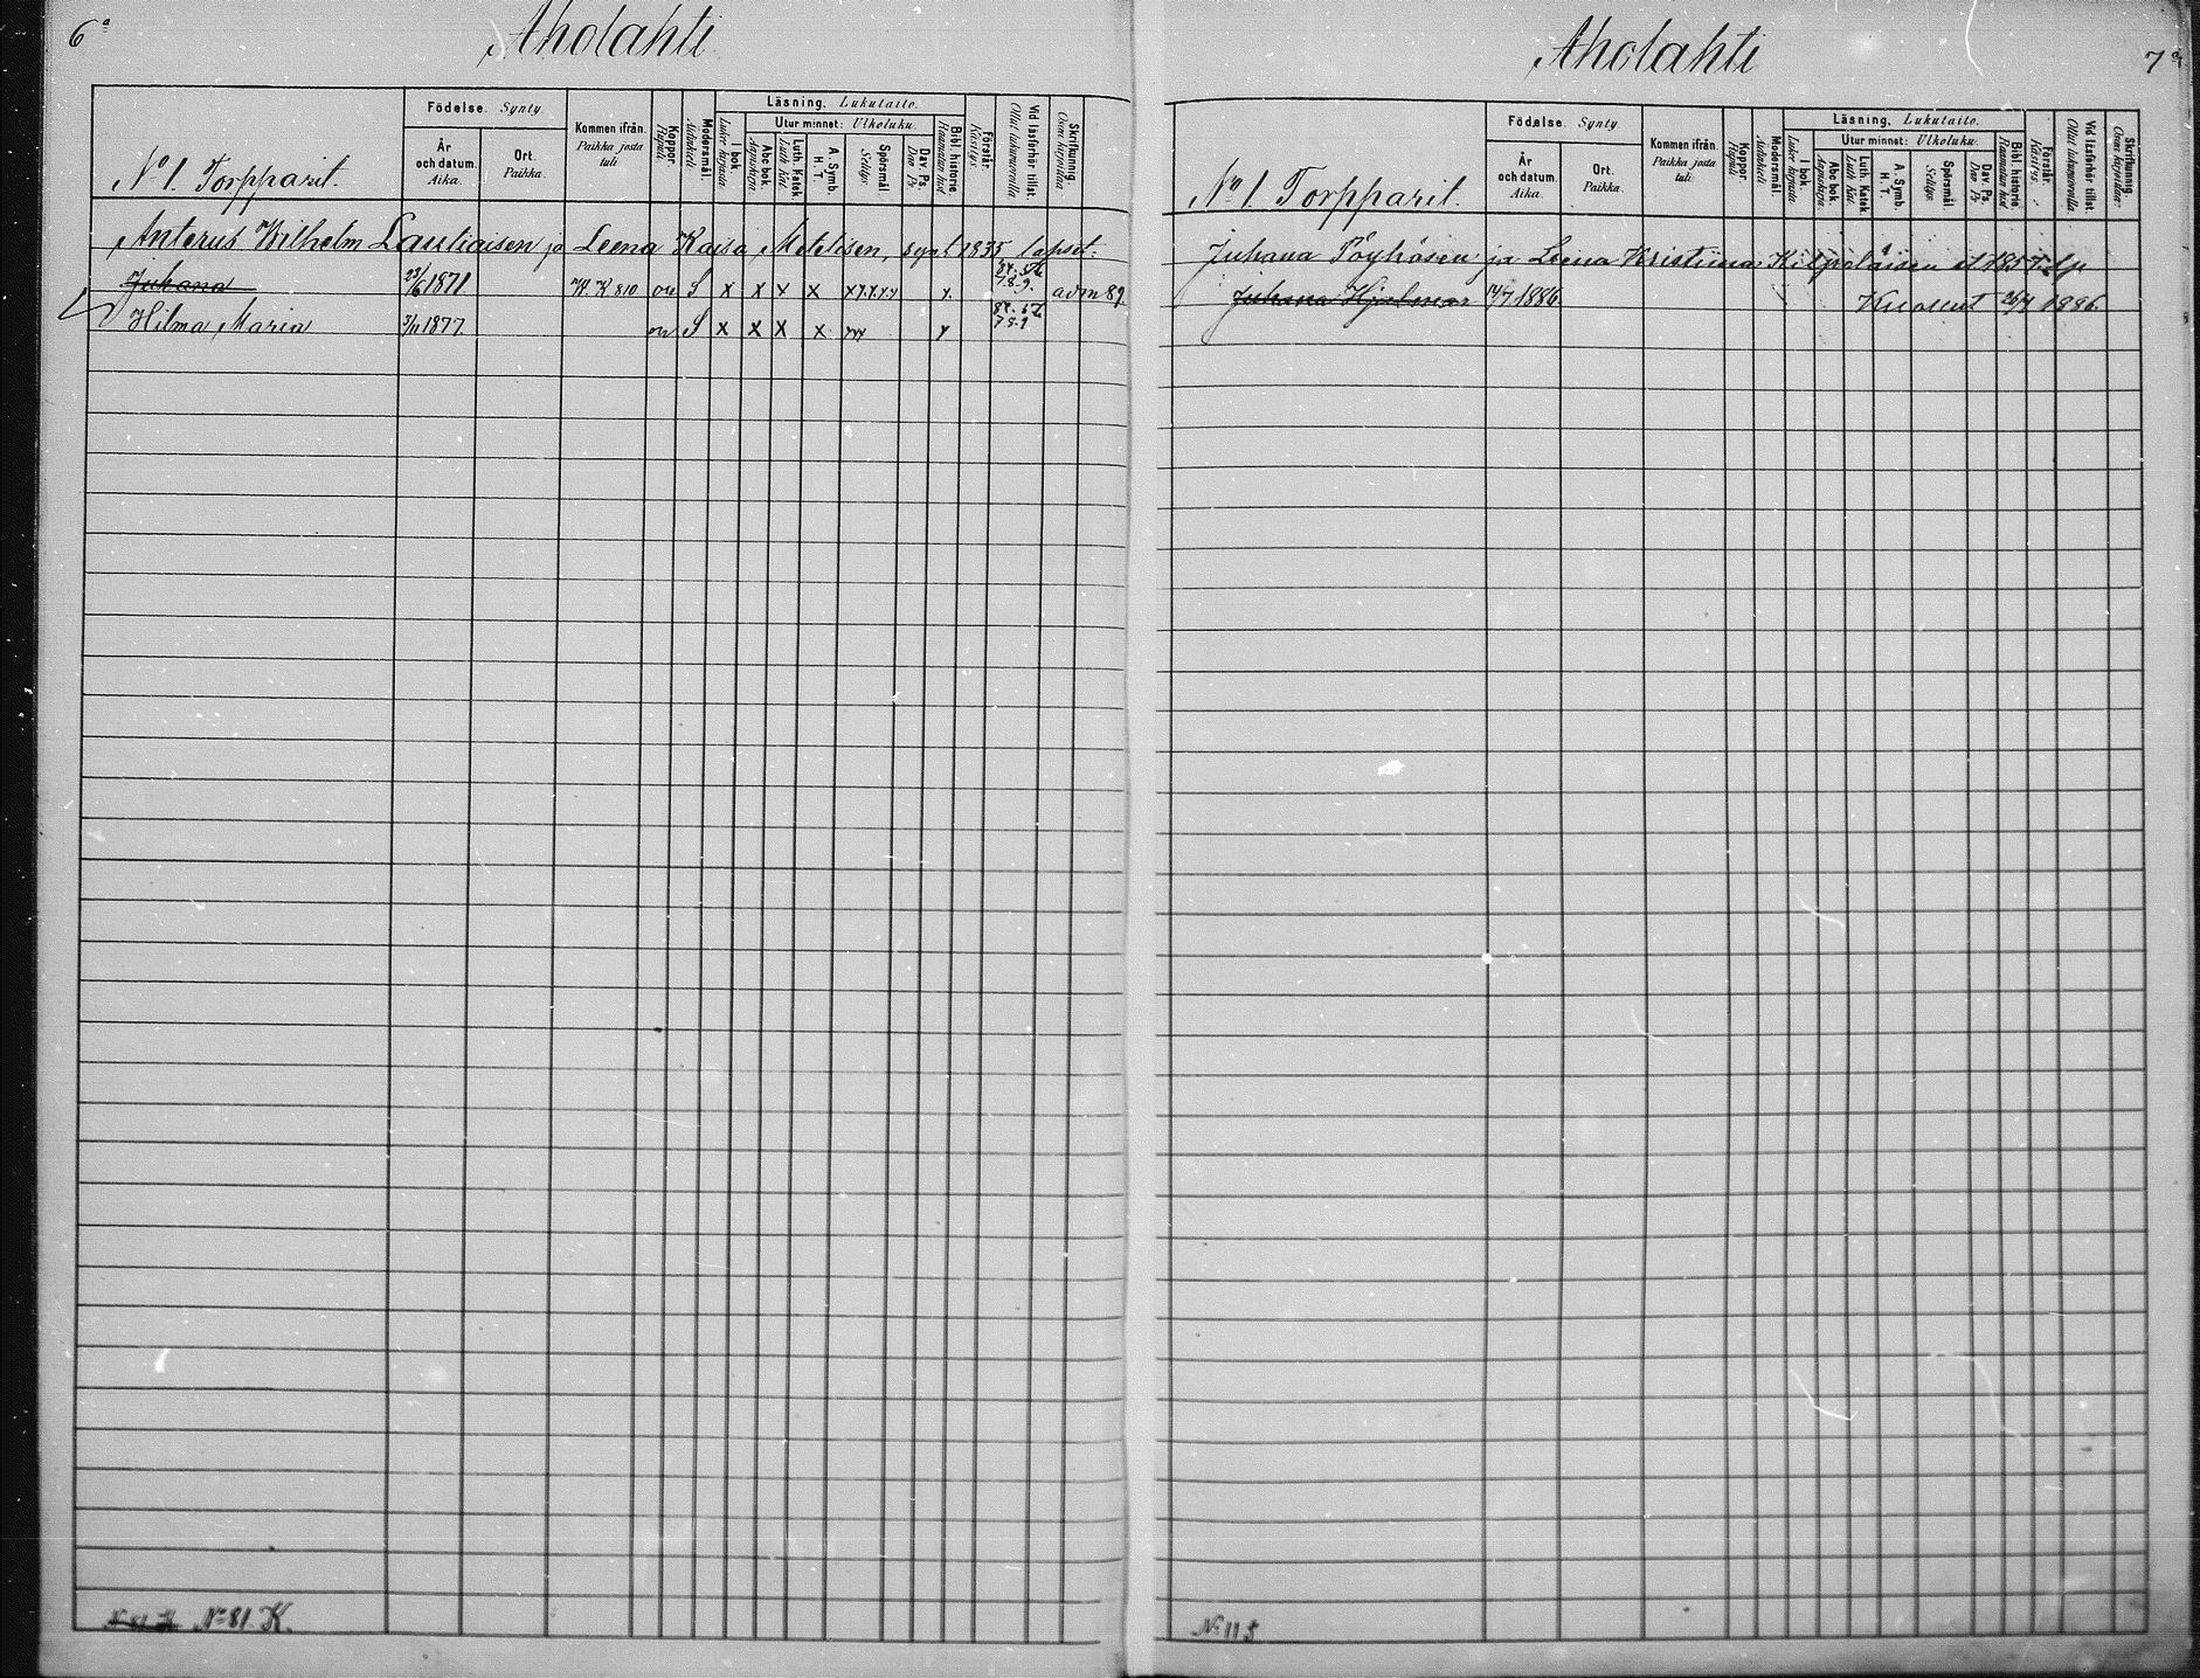 6a
Aholahti
No 1. Torpparit.
Födelse. Synty
År och datum. Aika.
Ort. Paikka.
Kommen ifrån. Paikka josta tuli
Koppor. Rupuli
Modersmål. Äidinkieli
Läsning. Lukutaito.
I bok. Lukee kirjasta
Utur minnet: Ulkoluku.
Abc bok. Aapiskirja
Luth. Katek. Luth. Kat.
A. Symb. H. T.
Spörsmål. Selitys.
Dav. Ps. Dav. Ps
Bibl. historie. Raamatun hist.
Förstår. Käsitys
Vid läsförhör tillst. Ollut lukuvuorolla
Skrifkunnig. Osaa kirjoittaa
Anterus Wilhelm Lautiaisen ja Leena Kaisa Metelisen, synt 1835, lapset:
Juhana 23/6 1871 K 810 on S x x x x x.y.y.y y. 7.8.9. adm 89.
Hilma Maria 3/11 1877 on S x x x x yyy y 7 8.9
No 81. K.
7a
Aholahti
No 1. Torpparit.
Födelse. Synty
År och datum. Aika.
Ort. Paikka.
Kommen ifrån. Paikka josta tuli
Koppor. Rupuli
Modersmål. Äidinkieli
Läsning. Lukutaito.
I bok. Lukee kirjasta
Utur minnet: Ulkoluku.
Abc bok. Aapiskirja
Luth. Katek. Luth. Kat.
A. Symb. H. T.
Spörsmål. Selitys.
Dav. Ps. Dav. Ps
Bibl. historie. Raamatun hist
Förstår. Käsitys.
Vid läsförhör tillst. Ollut lukuvuorolla
Skrifkunnig. Osaa kirjoittaa
Juhana Pöyhösen ja Leena Kristiina Kilpeläisen 1857 lp
Juhana Hjalmar 14/7 1886 Kuollut 26/7 1886.
No 115